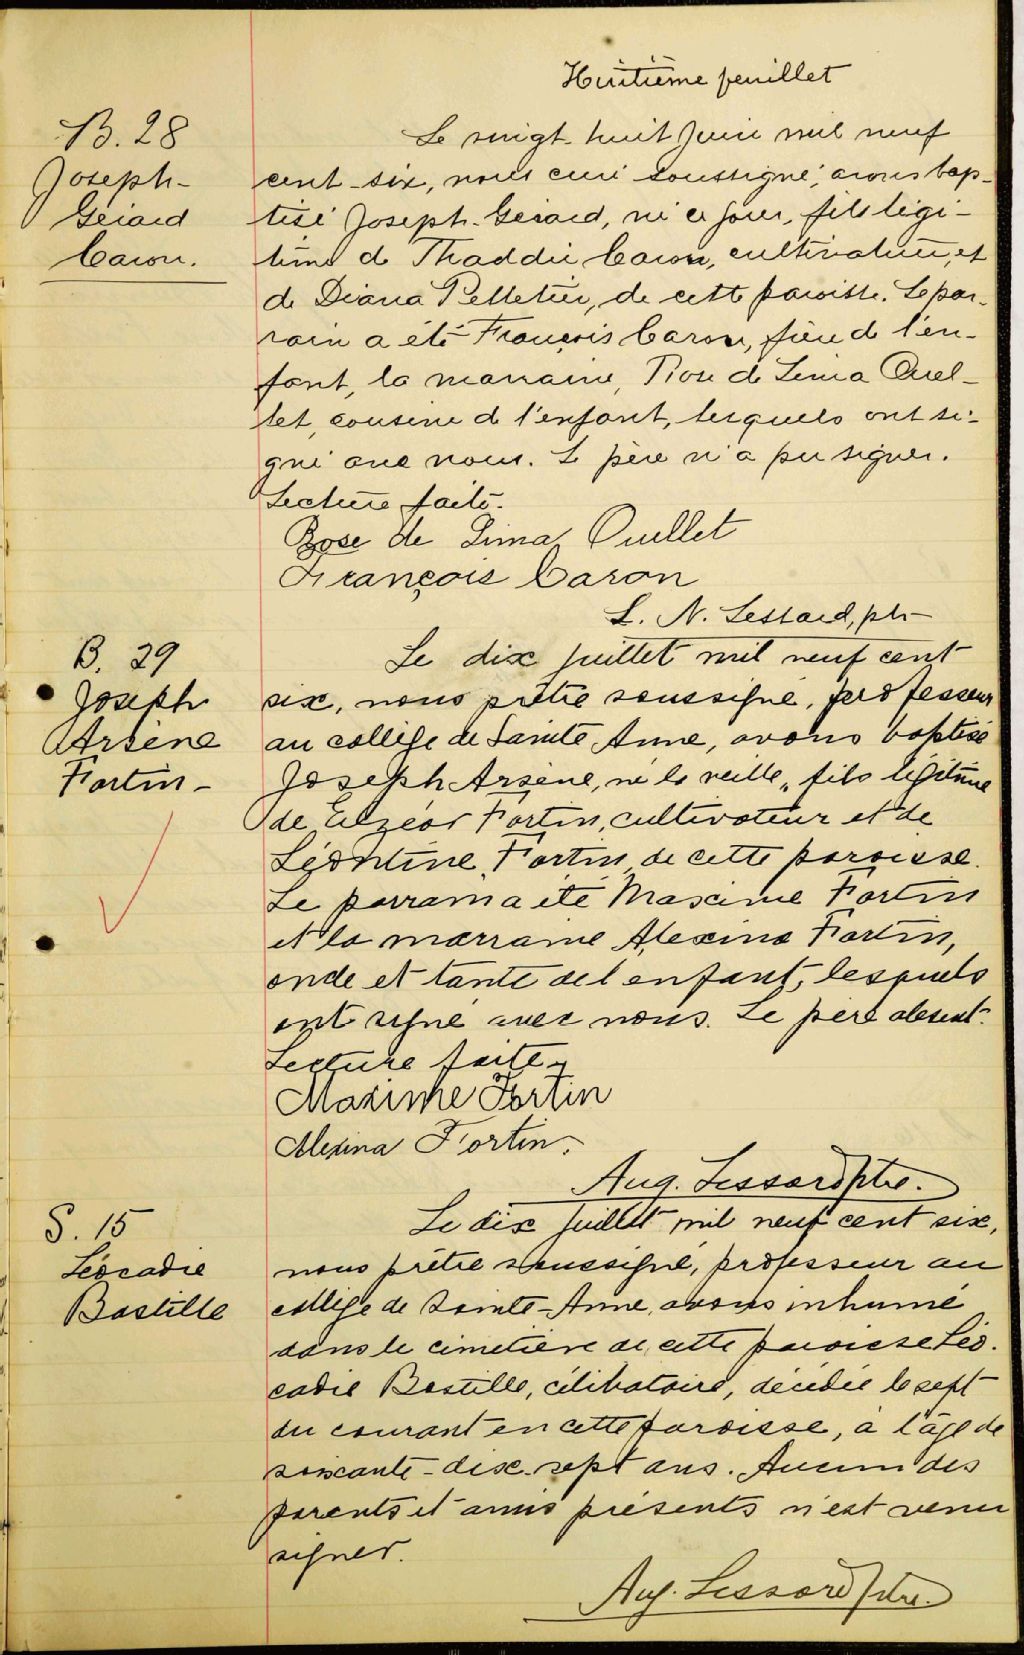 Huitième feuillet
B. 28
Joseph-
Gérard
Caron.
Le vingt-huit juin mil neuf
cent-six, nous curé soussigné, avons bap-
tisé Joseph-Gérard, né ce jour, fils légi-
time de Thaddée Caron, cultivateur, et
de Diana Pelletier, de cette paroisse. Le par-
rain a été François Caron, frère de l'en-
fant, la marraine, Rose de Lima Ouel-
let, cousine de l'enfant, lesquels ont si-
gné avec nous. Le père n'a pu signer.
Lecture faite.
Rose de Lima Ouellet
François Caron
L. N. Lessard, ptr
B. 29
Joseph
Arsène
Fortin-
Le dix juillet mil neuf cent
six, nous prêtre soussigné, professeur
au collège de Sainte Anne, avons baptisé
Joseph Arsène, né la veille, fils légitime
de Elzéar Fortin, cultivateur et de
Léontine Fortin de cette paroisse.
Le parrain a été Maxime Fortin
et la marraine Alexina Fortin,
oncle et tante de l'enfant, lesquels
ont signé avec nous. Le père absent.
Lecture faite.
Maxime Fortin
Alexina Fortin.
Aug. Lessard ptre.
S. 15
Léocadie
Bastille
Le dix juillet mil neuf cent six,
nous prêtre soussigné, professeur au
collège de Sainte-Anne, avons inhumé
dans le cimetière de cette paroisse Léo-
cadie Bastille, célibataire, décédée le sept
du courant en cette paroisse, à l'âge de
soixante-dix-sept ans. Aucun des
parents et amis présents n'est venu
signer.
Aug. Lessard ptre.